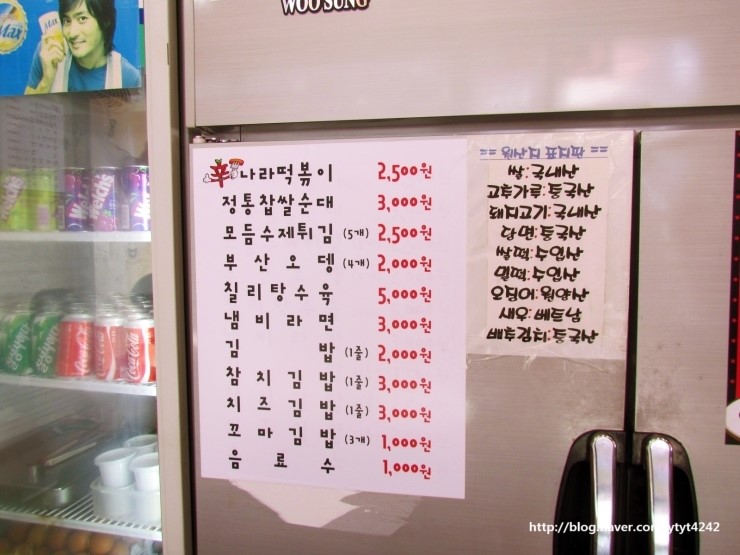 WOO SUNG
Max
Max
辛나라떡볶이 2,500원
정통찹쌀순대 3,000원
모듬수제튀김 (5개) 2,500원
부산오뎅 (4개) 2,000원
칠리탕수육 5,000원
냄비라면 3,000원
김밥 (1줄) 2,000원
참치김밥 (1줄) 3,000원
치즈김밥 (1줄) 3,000원
꼬마김밥 (3개) 1,000원
음료수 1,000원
== 원산지 표시판 ==
쌀:국내산
고추가루:중국산
돼지고기:국내산
당면:중국산
쌀떡:수입산
밀떡:수입산
오징어:원양산
새우:베트남
배추김치:중국산
Welch's
Welch's
Coca-Cola
Coca-Cola